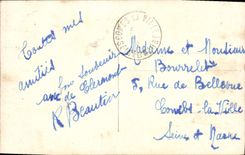 Toutes mes
amitiés
Bon Souvenir
de Clermont
R Beautin
Madame et Monsieur
Bourrelet
5, Rue de Bellevue
Combs-la-Ville
Seine et Marne